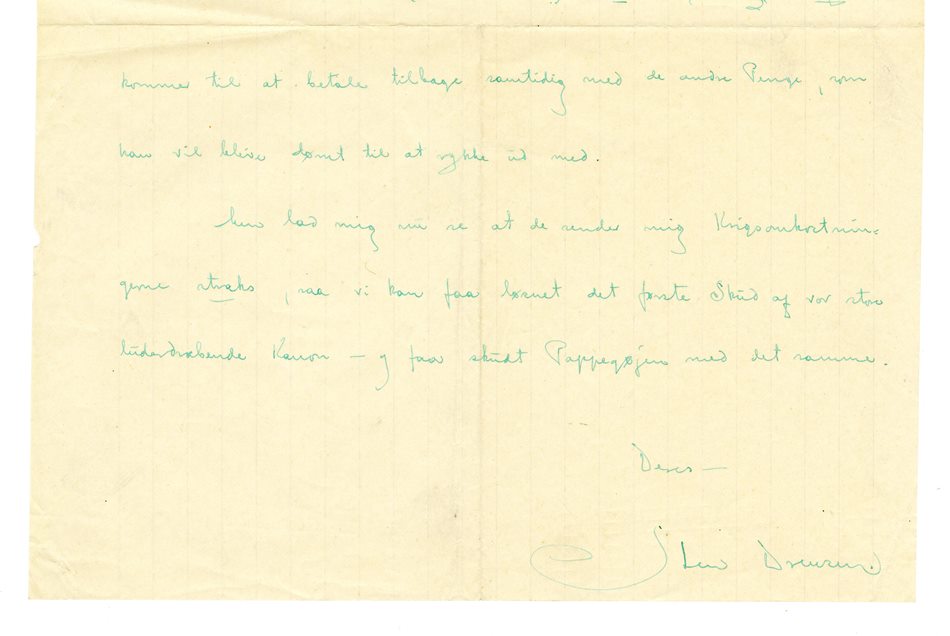 kommer til at betale tilbage samtidig med de andre Penge, som
han vil blive dømt til at rykke ud med.
Men lad mig nu se at de sender mig Krigsomkostnin=
gerne straks, saa vi kan faa løsnet det første Skud af vor store
luderdræbende Kanon — og faa skudt Pappegøjen med det samme.
Deres —
Sten Drewsen.